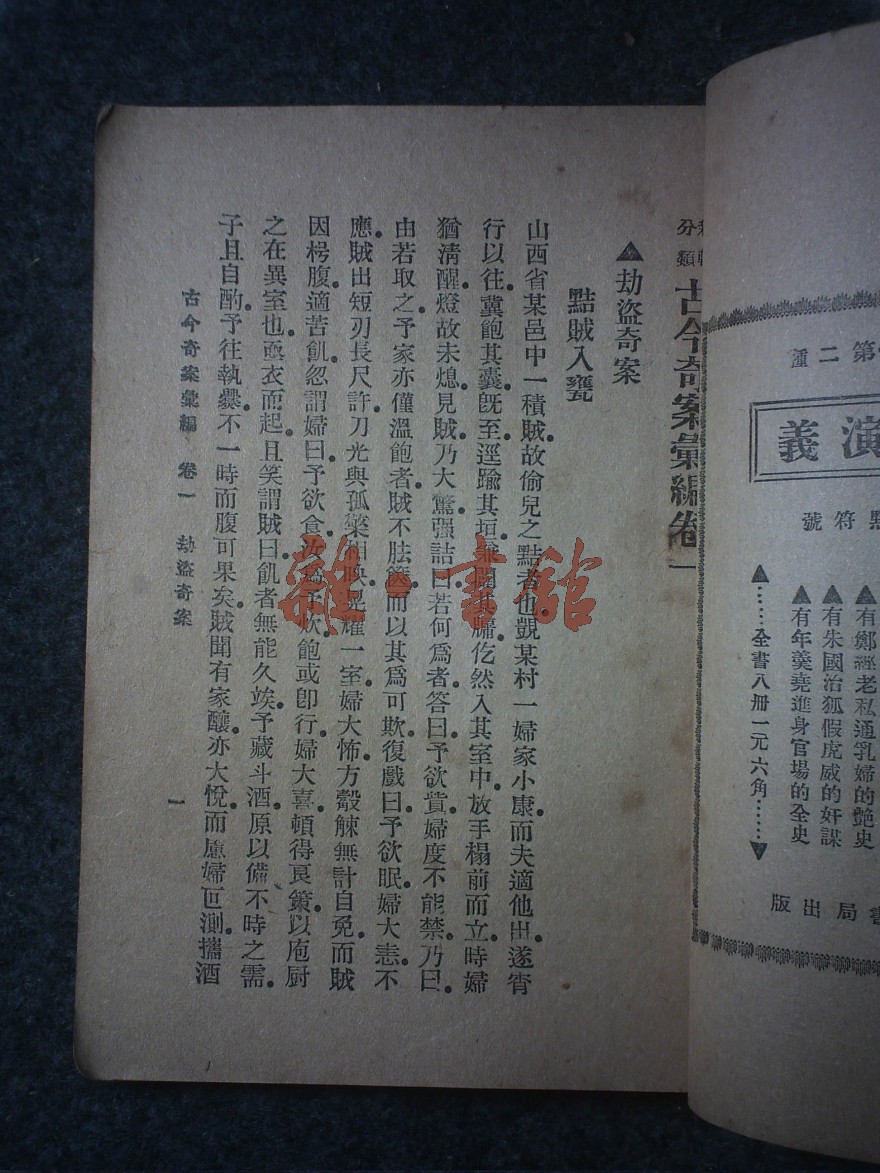 第二種
演義
點符號
▲有鄭經老私通乳婦的艷史
▲有朱國治狐假虎威的奸謀
▲有年羹堯進身官場的全史
▲……全書八冊一元六角……▼
書局出版
分類
古今奇案彙編卷一
▲劫盜奇案
黠賊入甕
山西省某邑中一積賊故偷兒之黠者也覬某村一婦家小康而夫適他出遂宵
行以往冀飽其囊旣至逕踰其垣兼闢其牖仡然入其室中放手榻前而立時婦
猶淸醒燈故未熄見賊乃大驚强詰曰若何爲者答曰予欲貲婦度不能禁乃曰
由若取之予家亦僅溫飽者賊不胠篋而以其爲可欺復戲曰予欲眠婦大恚不
應賊出短刃長尺許刀光與孤檠相映晃耀一室婦大怖方觳觫無計自免而賊
因枵腹適苦飢忽謂婦曰予欲食汝爲予炊飽或卽行婦大喜頓得良策以庖厨
之在異室也亟衣而起且笑謂賊曰飢者無能久竢予藏斗酒原以備不時之需
子且自酌予往執爨不一時而腹可果矣賊聞有家釀亦大悅而慮婦叵測攜酒
古今奇案彙編 卷一 劫盜奇案
一
雜·書館